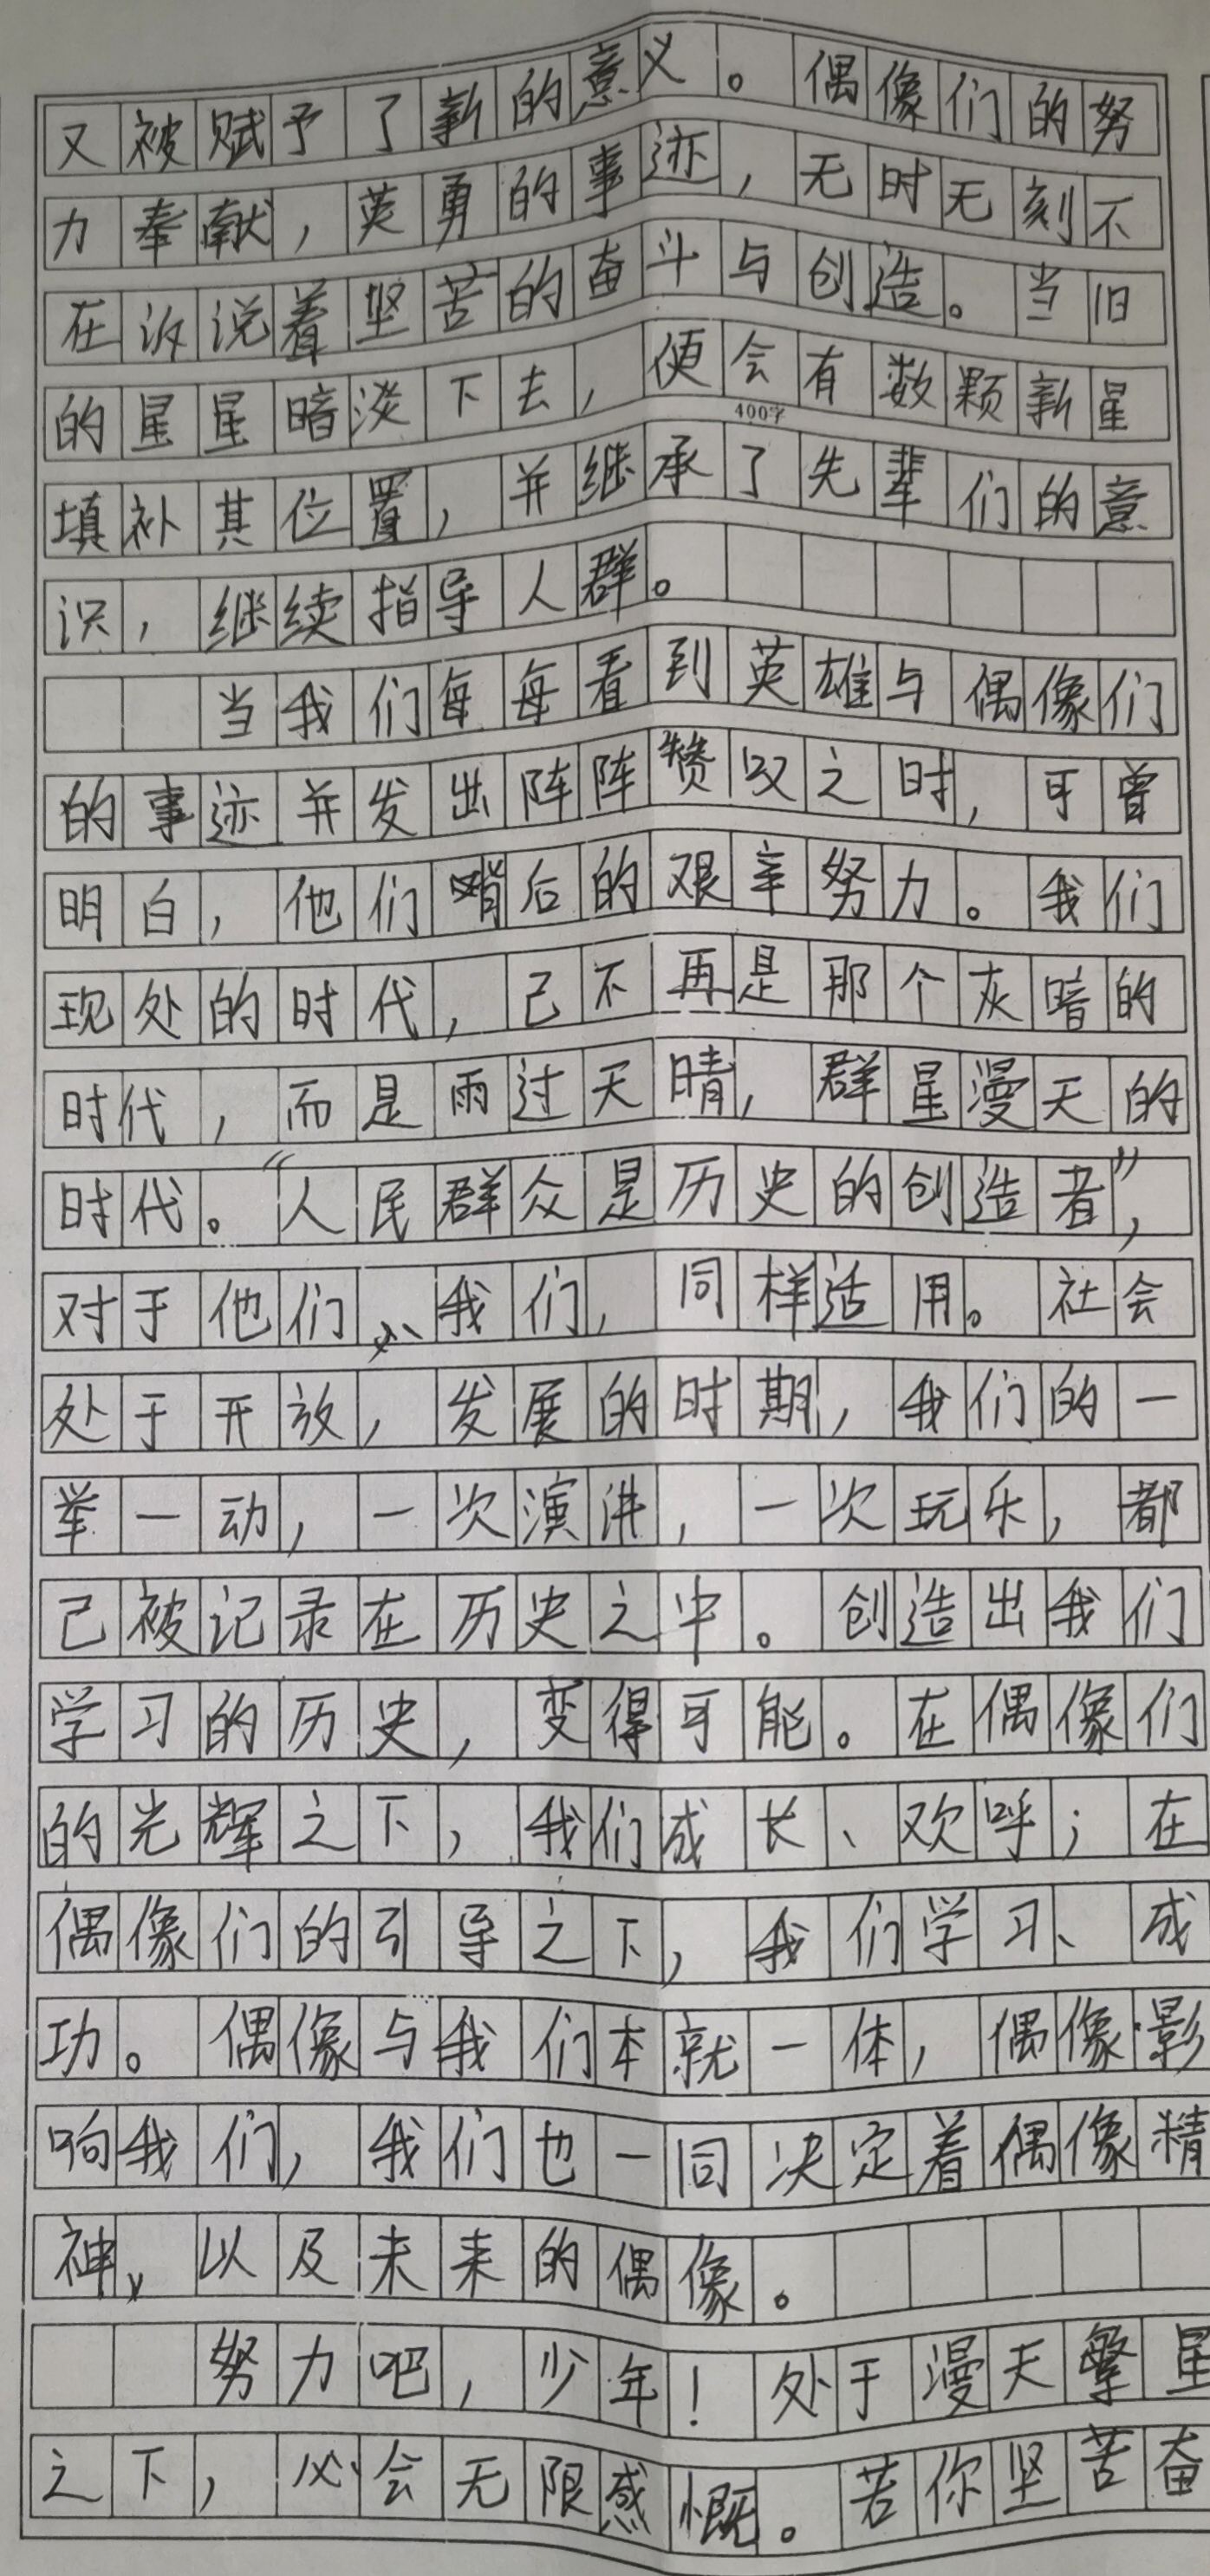 又被赋予了新的意义。偶像们的努
力奉献，英勇的事迹，无时无刻不
在诉说着坚苦的奋斗与创造。当旧
的星星暗淡下去，便会有数颗新星
400字
填补其位置，并继承了先辈们的意
识，继续指导人群。
当我们每每看到英雄与偶像们
的事迹并发出阵阵赞叹之时，可曾
明白，他们背后的艰辛努力。我们
现处的时代，已不再是那个灰暗的
时代，而是雨过天晴，群星漫天的
时代。“人民群众是历史的创造者”，
对于他们、我们，同样适用。社会
处于开放，发展的时期，我们的一
举一动，一次演讲，一次玩乐，都
已被记录在历史之中。创造出我们
学习的历史，变得可能。在偶像们
的光辉之下，我们成长、欢呼；在
偶像们的引导之下，我们学习、成
功。偶像与我们本就一体，偶像影
响我们，我们也一同决定着偶像精
神，以及未来的偶像。
努力吧，少年！处于漫天繁星
之下，必会无限感慨。若你坚苦奋